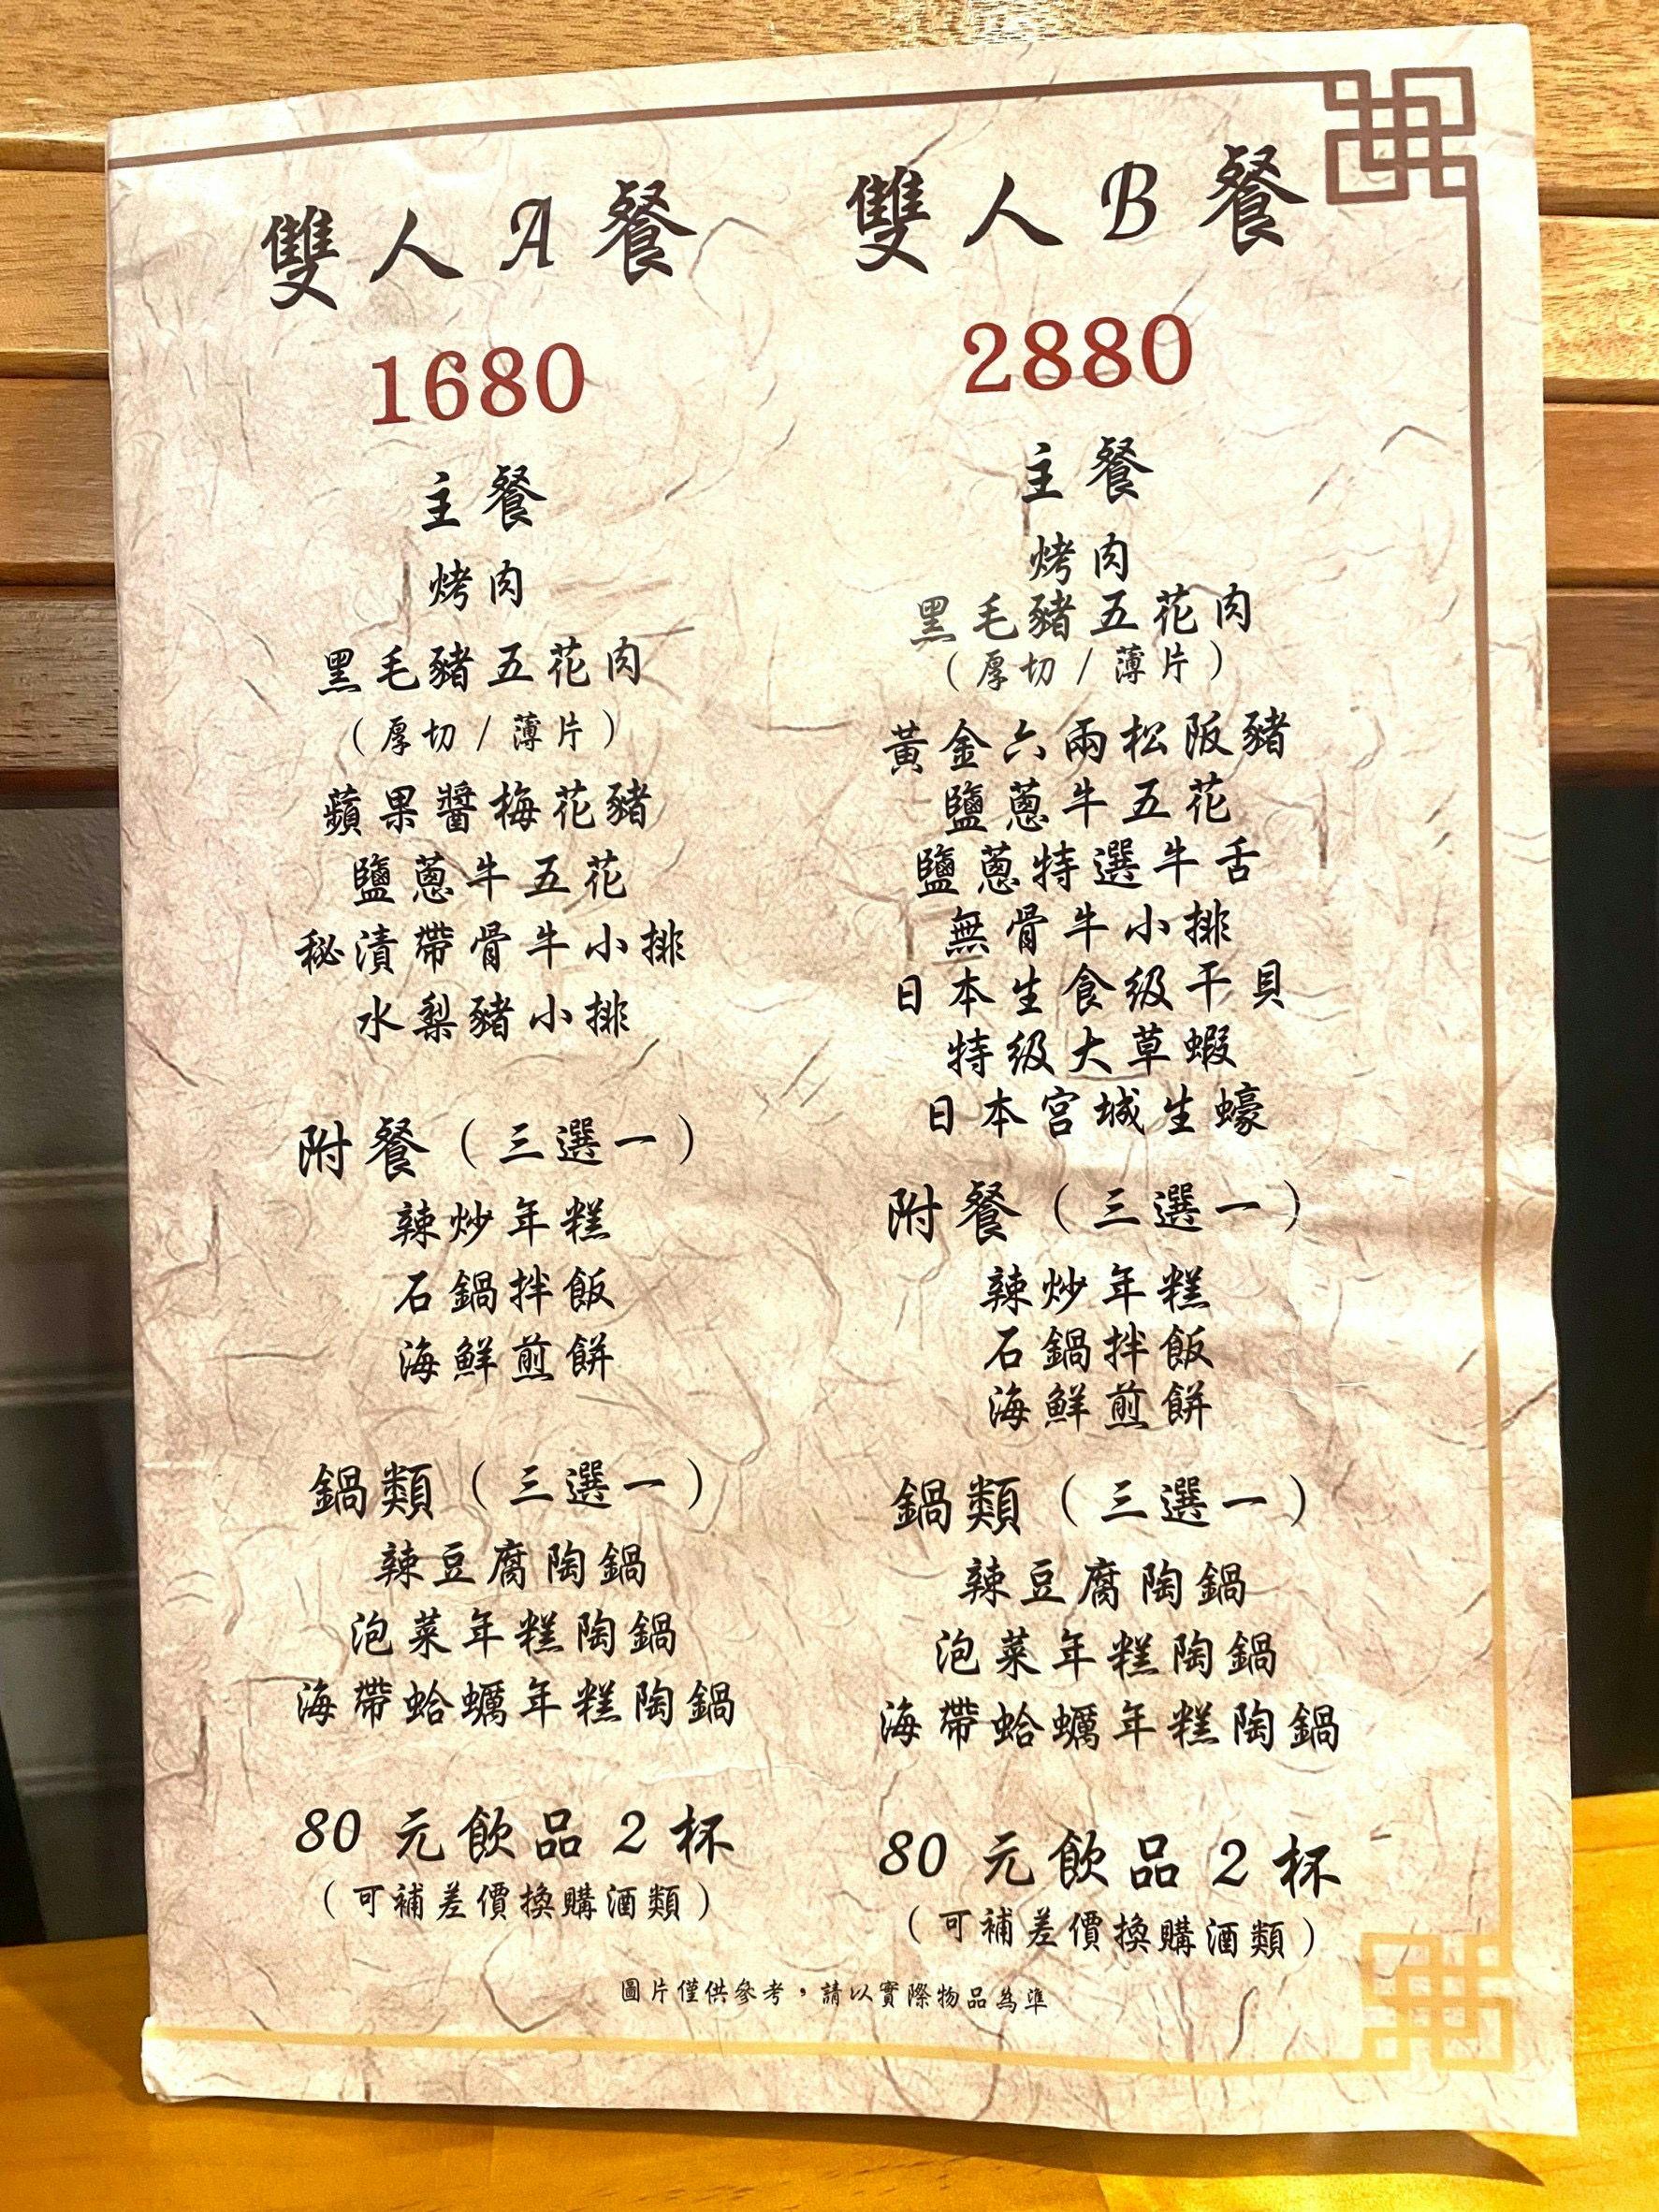 雙人A餐
1680
主餐
烤肉
黑毛豬五花肉
（厚切/薄片）
蘋果醬梅花豬
鹽蔥牛五花
秘漬帶骨牛小排
水梨豬小排
附餐（三選一）
辣炒年糕
石鍋拌飯
海鮮煎餅
鍋類（三選一）
辣豆腐陶鍋
泡菜年糕陶鍋
海帶蛤蠣年糕陶鍋
80元飲品2杯
（可補差價換購酒類）
雙人B餐
2880
主餐
烤肉
黑毛豬五花肉
（厚切/薄片）
黃金六兩松阪豬
鹽蔥牛五花
鹽蔥特選牛舌
無骨牛小排
日本生食級干貝
特級大草蝦
日本宮城生蠔
附餐（三選一）
辣炒年糕
石鍋拌飯
海鮮煎餅
鍋類（三選一）
辣豆腐陶鍋
泡菜年糕陶鍋
海帶蛤蠣年糕陶鍋
80元飲品2杯
（可補差價換購酒類）
圖片僅供參考，請以實際物品為準